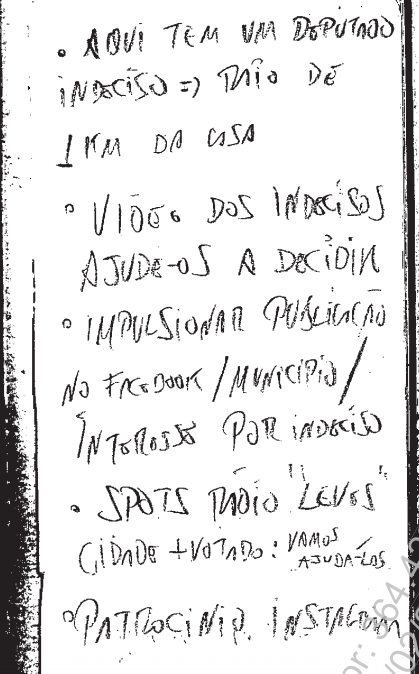 • AQUI TEM UM DEPUTADO
INDECISO => RAIO DE
1 KM DA CASA
• VIDEO DOS INDECISOS
AJUDE-OS A DECIDIR
• IMPULSIONAR PUBLICAÇÃO
NO FACEBOOK / MUNICIPIO /
INTERESSE POR INDECISO
• SPOTS RÁDIO "LEVES"
CIDADE + VOTADO: VAMOS
AJUDÁ-LOS
• PATROCINIO INSTAGRAM